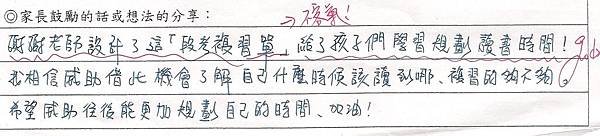 ◎家長鼓勵的話或想法的分享： → 不客氣！
謝謝老師設計了這「段考複習單」給了孩子們學習規劃讀書時間！good
我相信威助借此機會了解自己什麼時候該讀到哪、複習的夠不夠。
希望威助往後能更加規劃自己的時間、加油！